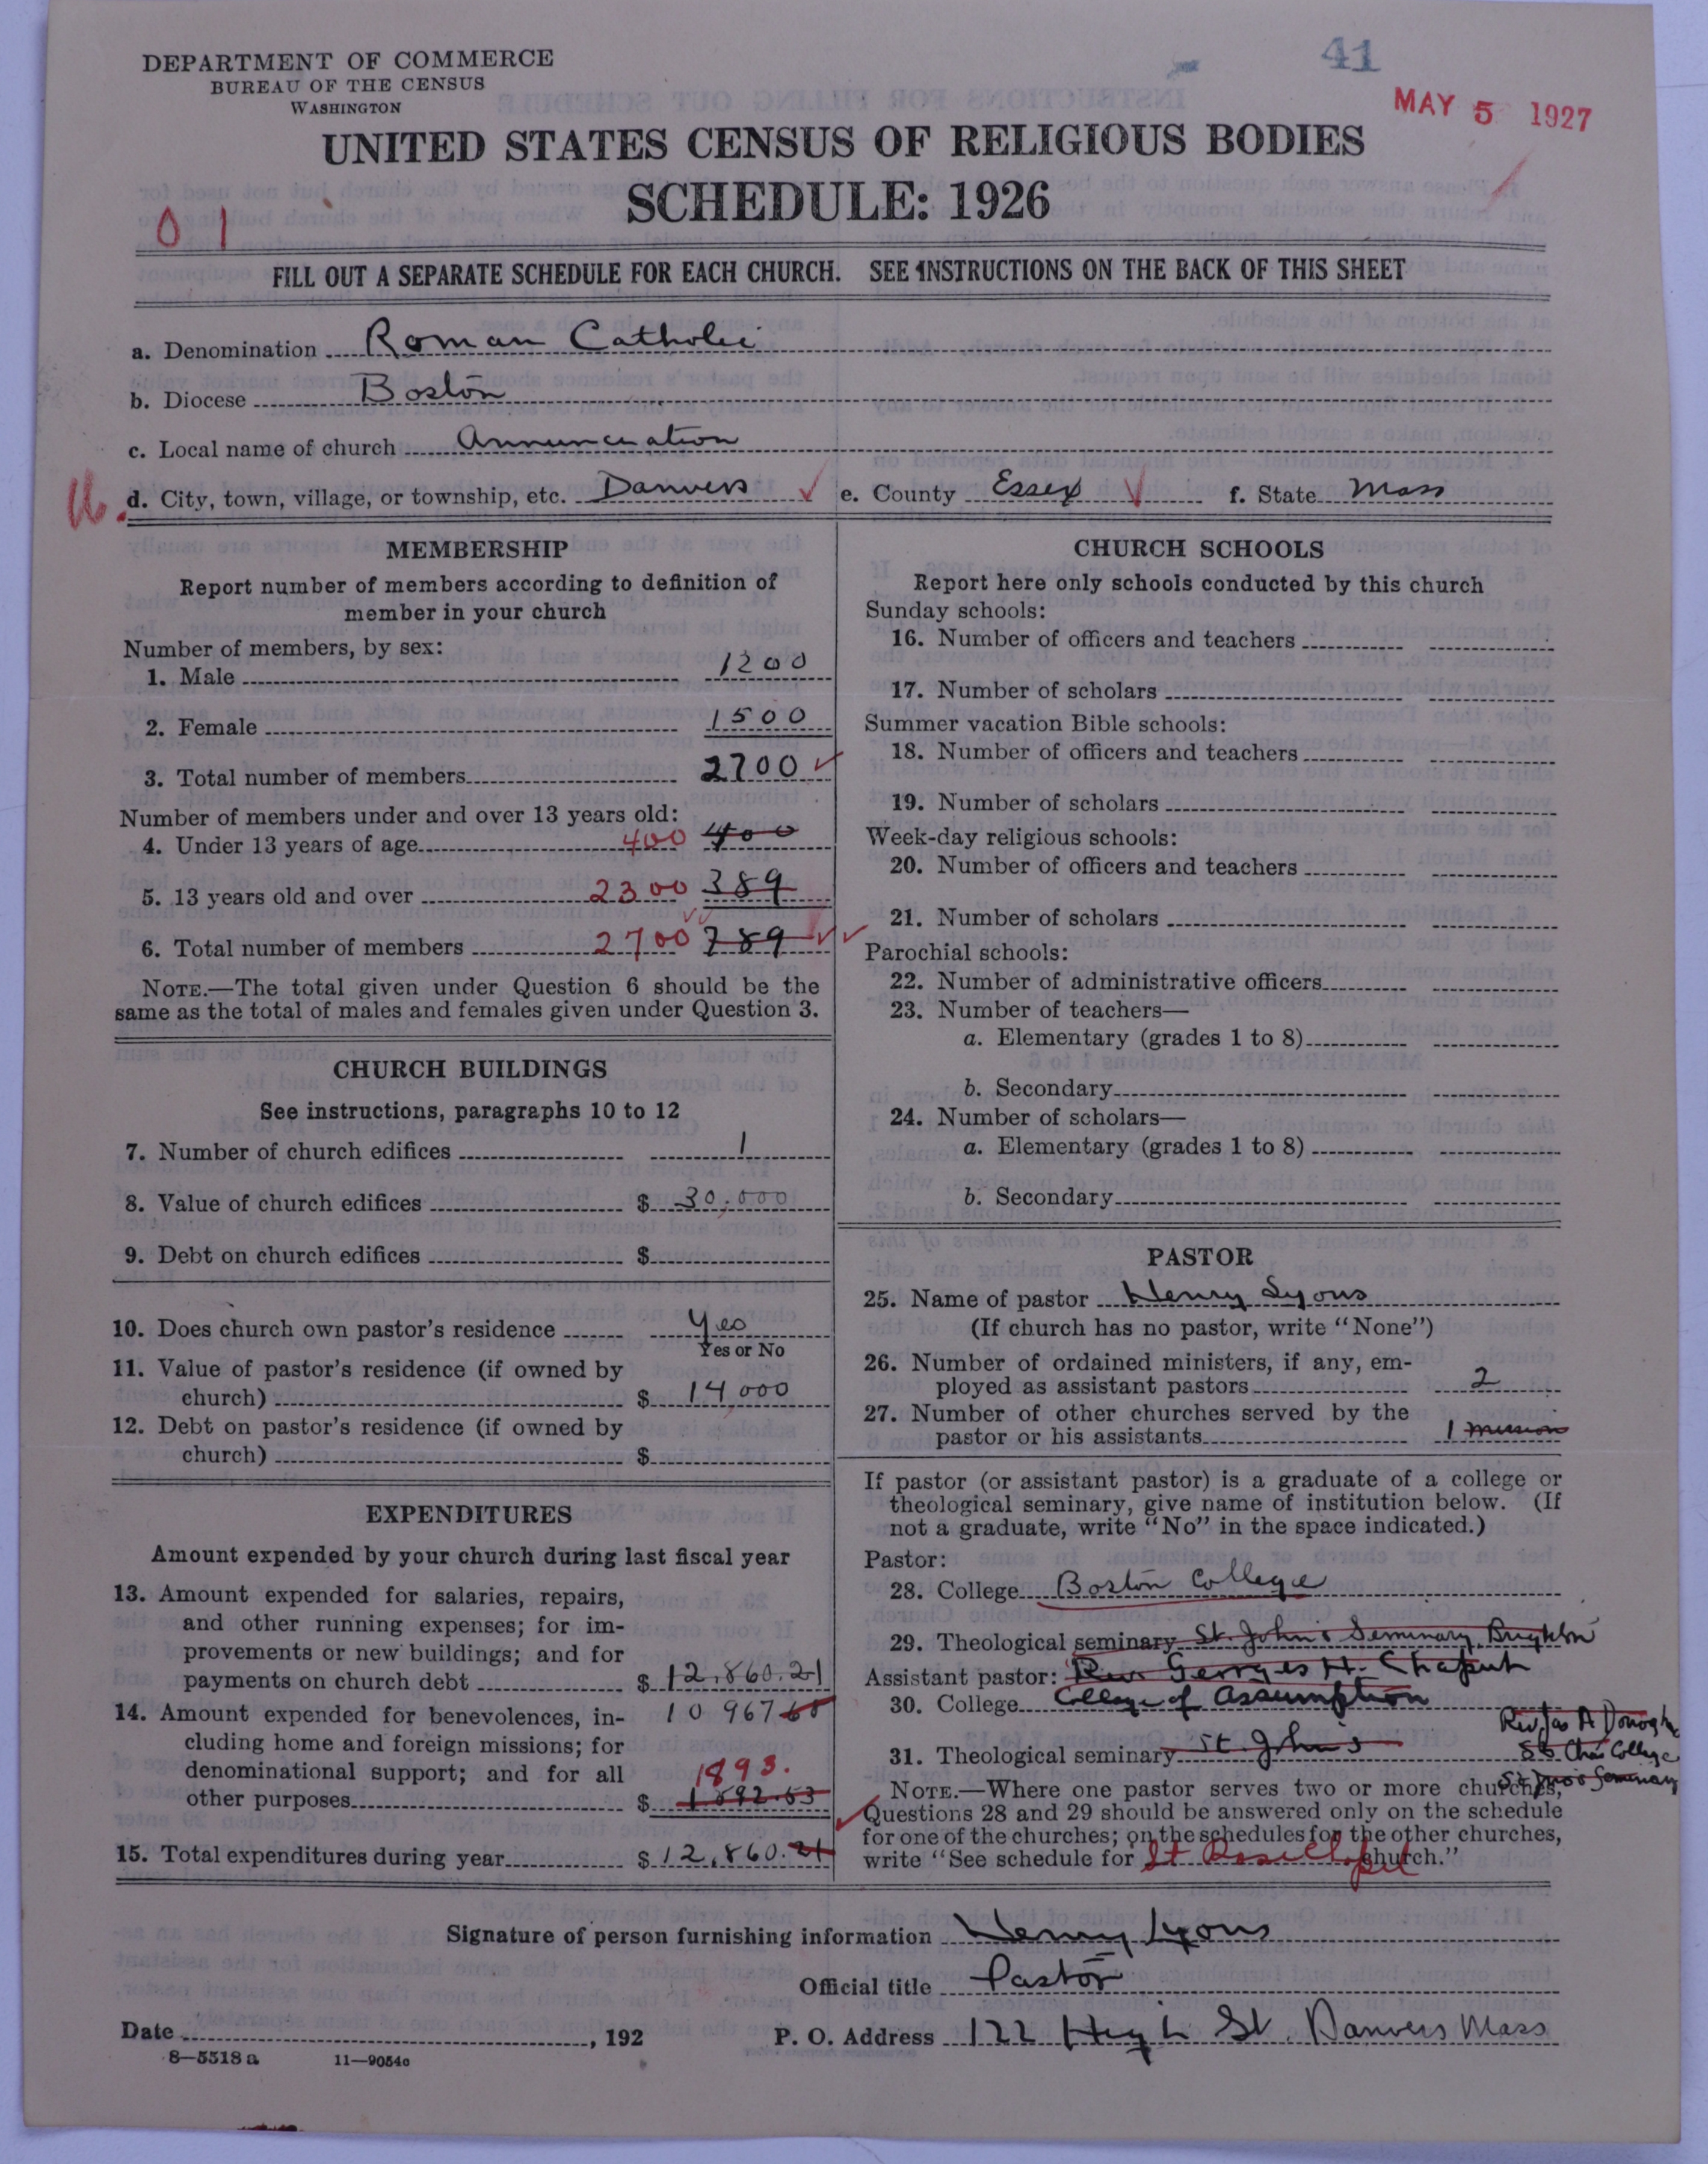 41
MAY 5 1927
DEPARTMENT OF COMMERCE
BUREAU OF THE CENSUS
WASHINGTON
UNITED STATES CENSUS OF RELIGIOUS BODIES
SCHEDULE: 1926
0 1
FILL OUT A SEPARATE SCHEDULE FOR EACH CHURCH. SEE INSTRUCTIONS ON THE BACK OF THIS SHEET
a. Denomination Roman Catholic
b. Diocese Boston
c. Local name of church Annunciation
d. City, town, village, or township, etc. Danvers e. County Essex f. State Mass
MEMBERSHIP
Report number of members according to definition of
member in your church
Number of members, by sex:
1. Male 1200
2. Female 1500
3. Total number of members 2700
Number of members under and over 13 years old:
4. Under 13 years of age 400 400
5. 13 years old and over 2300 389
6. Total number of members 2700 789
NOTE.—The total given under Question 6 should be the
same as the total of males and females given under Question 3.
CHURCH BUILDINGS
See instructions, paragraphs 10 to 12
7. Number of church edifices 1
8. Value of church edifices $ 30,000
9. Debt on church edifices $
10. Does church own pastor's residence Yes
Yes or No
11. Value of pastor's residence (if owned by
church) $ 14,000
12. Debt on pastor's residence (if owned by
church) $
EXPENDITURES
Amount expended by your church during last fiscal year
13. Amount expended for salaries, repairs,
and other running expenses; for im-
provements or new buildings; and for
payments on church debt $ 12,860.21
10 967
14. Amount expended for benevolences, in-
cluding home and foreign missions; for
denominational support; and for all 1893.
other purposes $ 1892.53
15. Total expenditures during year $ 12,860.21
CHURCH SCHOOLS
Report here only schools conducted by this church
Sunday schools:
16. Number of officers and teachers
17. Number of scholars
Summer vacation Bible schools:
18. Number of officers and teachers
19. Number of scholars
Week-day religious schools:
20. Number of officers and teachers
21. Number of scholars
Parochial schools:
22. Number of administrative officers
23. Number of teachers—
a. Elementary (grades 1 to 8)
b. Secondary
24. Number of scholars—
a. Elementary (grades 1 to 8)
b. Secondary
PASTOR
25. Name of pastor Henry Lyons
(If church has no pastor, write "None")
26. Number of ordained ministers, if any, em-
ployed as assistant pastors 2
27. Number of other churches served by the
pastor or his assistants 1 mission
If pastor (or assistant pastor) is a graduate of a college or
theological seminary, give name of institution below. (If
not a graduate, write "No" in the space indicated.)
Pastor:
28. College Boston College
29. Theological seminary St. John's Seminary, Brighton
Assistant pastor: Rev. Georges H. Chaput
30. College College of Assumption
Rev. Jas A Donoghue
31. Theological seminary St John's
St. Chas College
Seminary
NOTE.—Where one pastor serves two or more churches,
Questions 28 and 29 should be answered only on the schedule
for one of the churches; on the schedules for the other churches,
write "See schedule for St Rose Chapel church."
Signature of person furnishing information Henry Lyons
Official title Pastor
Date , 192 P. O. Address 122 High St. Danvers Mass
8—5518 a 11—9054c